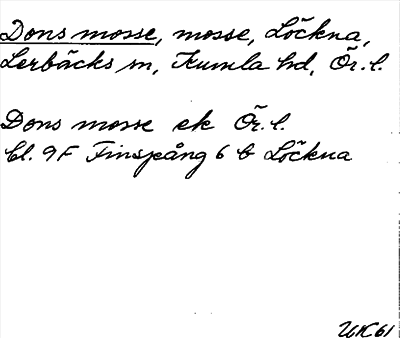 Dons mosse, mosse, Löckna,
Lerbäcks sn, Kumla hd, Ör. l.
Dons mosse ek Ör. l.
bl. 9F Finspång 6 b Löckna
UK61